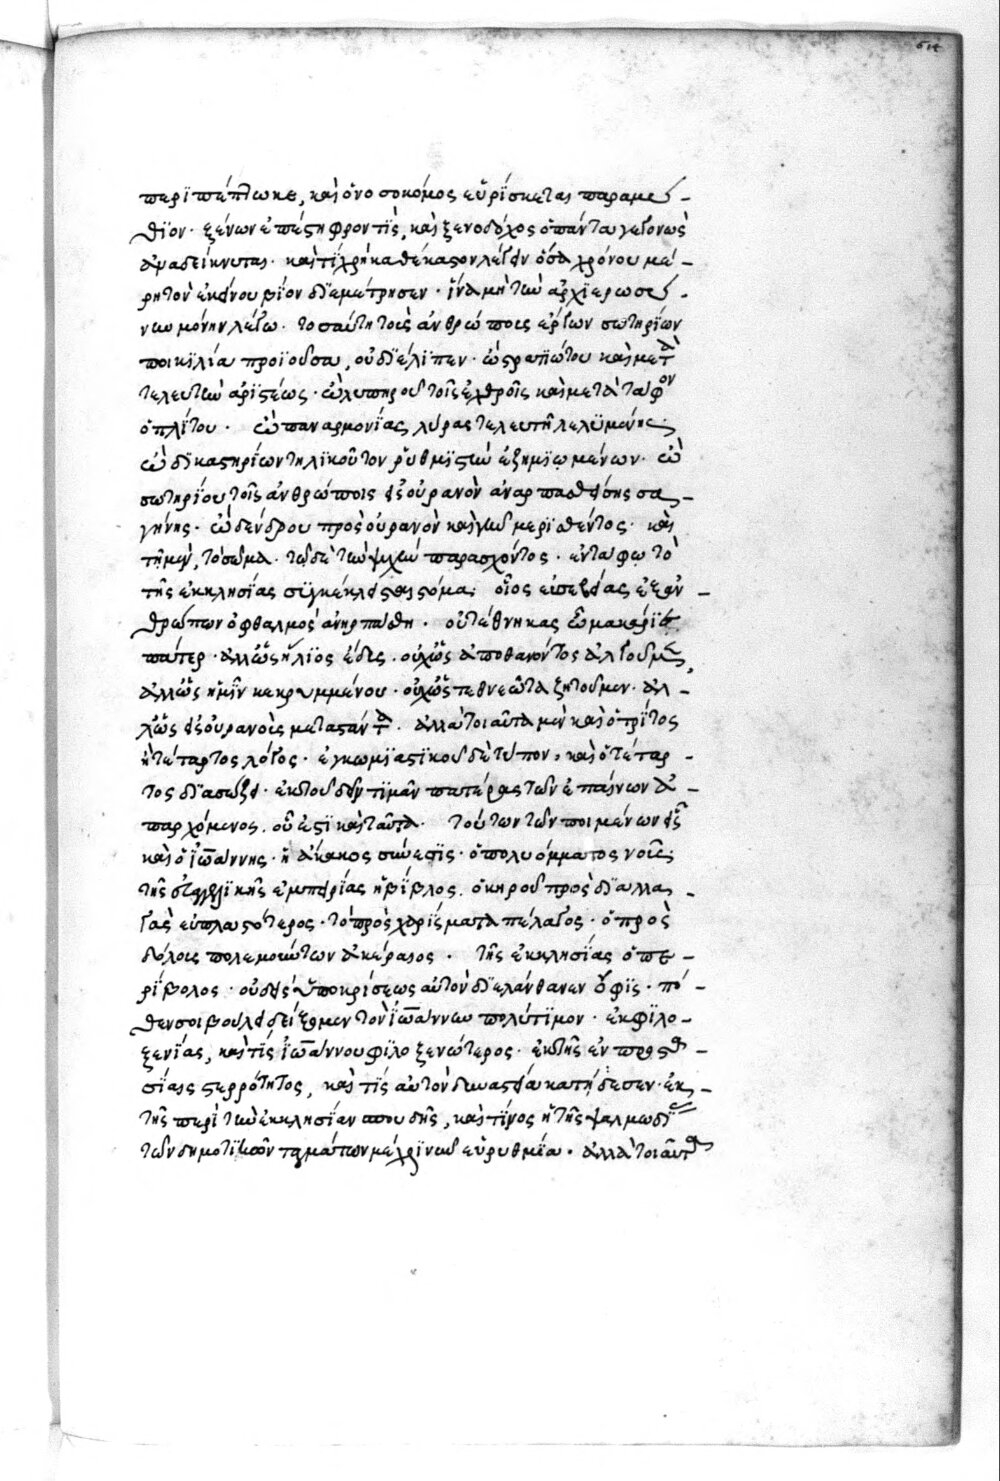 614
περιπέπτωκε, καὶ ὁ νοσοκόμος εὑρίσκεται παραμύ-
θιον. ξένων ἐπέστη φροντὶς, καὶ ξενοδόχος ὁ πάντα γεγονὼς
ἀναδείκνυται. καὶ τί χρὴ καθέκαστον λέγειν ὅσα χρόνου μέ-
ρη τὸν ἐκείνου βίον διεμέτρησεν. ἵνα μὴ τὴν ἀρχιερωσύ-
νην μόνην λέγω. τοσαύτη τοῖς ἀνθρώποις ἔργων σωτηρίων
ποικιλία προϊοῦσα, οὐ διέλιπεν. ὢ στρατιώτου καὶ μετὰ
τελευτὴν ἀριστέως. ὢ λυπηροῦ τοῖς ἐχθροῖς καὶ μετὰ τάφον
ὁπλίτου. ὢ παναρμονίας λύρας τελευτῇ λελυμένης.
ὢ δικαστηρίων τηλικοῦτον ῥυθμιστὴν ἐζημιωμένων. ὢ
σωτηρίου τοῖς ἀνθρώποις εἰς οὐρανὸν ἀναρπασθείσης σα-
γήνης. ὢ δένδρου πρὸς οὐρανὸν καὶ γῆν μερισθέντος. καὶ
τῇ μὲν, τὸ σῶμα. τῷ δὲ τὴν ψυχὴν παρασχόντος. ἐν τάφω τὸ
τῆς ἐκκλησίας συγκέκλεισται στόμα. οἷος εὐσεβείας ἐξ ἀν-
θρώπων ὀφθαλμὸς ἀνηρπάσθη. οὐ τέθνηκας ὦ μακάριε
πάτερ. ἀλλ' ὡς ἥλιος ἔδυς. οὐχ ὡς ἀποθανόντος ἀλγοῦμεν,
ἀλλ' ὡς ἡμῖν κεκρυμμένου. οὐχ ὡς τεθνεῶτα ζητοῦμεν. ἀλ-
λ' ὡς εἰς οὐρανοὺς μεταστάντα. ἀλλὰ τοιαῦτα μὲν καὶ ὁ τρίτος
ἢ τέταρτος λόγος. ἐγκωμιαστικοῦ δὲ τύπον. καὶ ὁ τέταρ-
τος διασώζει. ἐκ τοῦ δεῖν τιμᾶν πατέρας τῶν ἐπαίνων ἀ-
παρχόμενος. οὗ ἐστι καὶ ταῦτα. τούτων τῶν ποιμένων εἷς
καὶ ὁ ἰωάννης. ἡ ἄκακος σύνεσις. ὁ πολυόμματος νοῦς.
τῆς ἀγγελικῆς ἐμπειρίας ἡ βίβλος. ὁ κηροῦ πρὸς διαλλα-
γὰς εὐπλαστότερος. τὸ πρὸς χαρίσματα πέλαγος. ὁ πρὸς
δόλους πολεμούντων ἀκέραιος. τῆς ἐκκλησίας ὁ πε-
ρίβολος. οὐδεὶς ὑποκρίσεως αὐτὸν διελάνθανεν ὄφις. πό-
θεν σοι βούλει δείξωμεν τὸν ἰωάννην πολύτιμον. ἐκ φιλο-
ξενίας, καὶ τίς ἰωάννου φιλοξενώτερος. ἐκ τῆς ἐν προστα-
σίαις στερρότητος, καὶ τίς αὐτὸν δυναστεία κατῄδεσεν. ἐκ
τῆς περὶ τὴν ἐκκλησίαν σπουδῆς, καὶ τίνος ἡ τῆς ψαλμωδίας
τῶν δημοτικῶν ταγμάτων μέχρι νῦν εὐρυθμία. ἀλλὰ τοιαῦτα